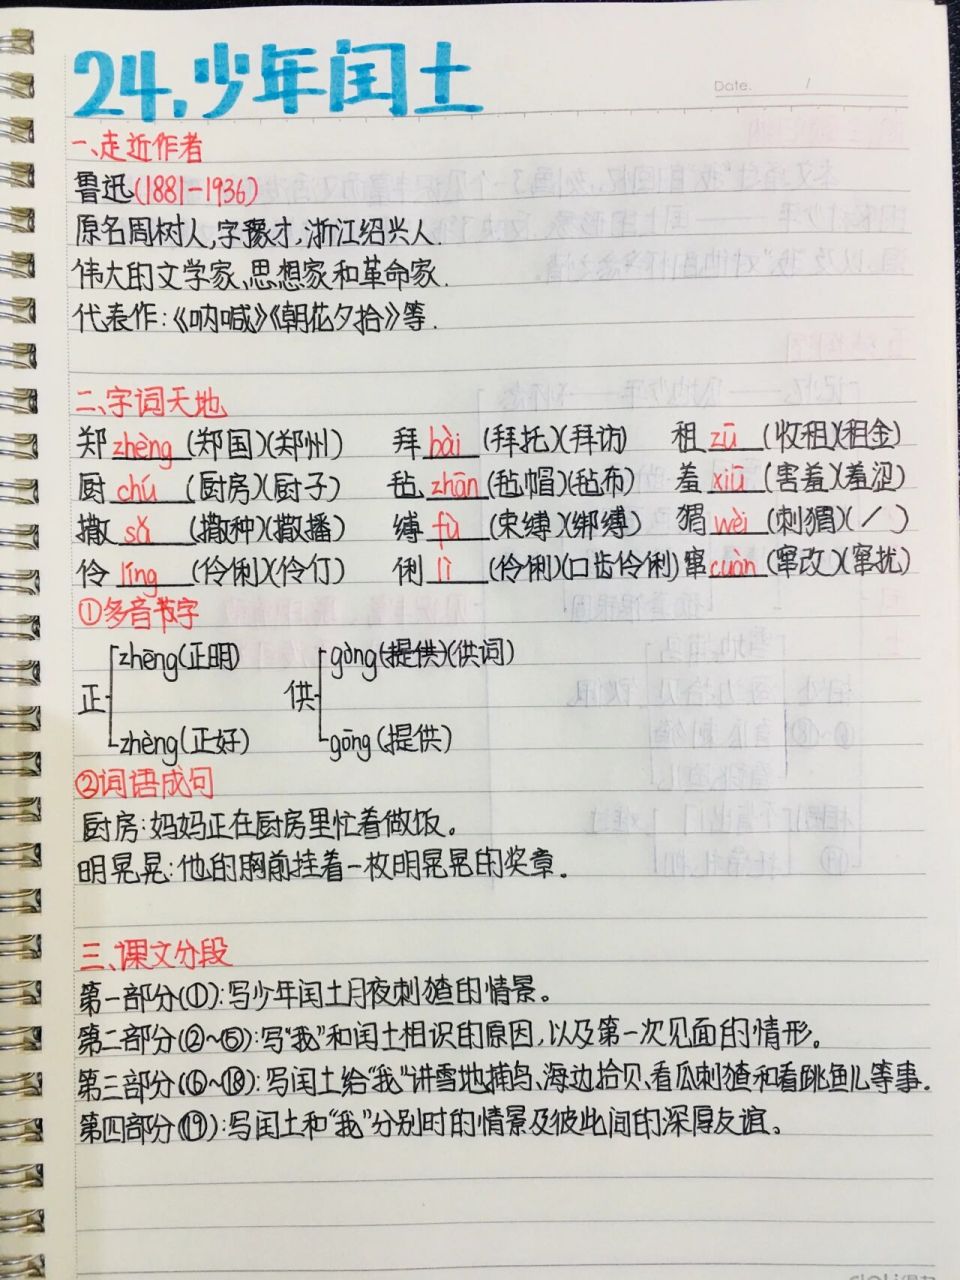 24.少年闰土
Date. /
一、走近作者
鲁迅(1881-1936)
原名周树人,字豫才,浙江绍兴人.
伟大的文学家、思想家和革命家.
代表作:《呐喊》《朝花夕拾》等.
二、字词天地
郑 zhèng (郑国)(郑州) 拜 bài (拜托)(拜访) 租 zū (收租)(租金)
厨 chú (厨房)(厨子) 毡 zhān (毡帽)(毡布) 羞 xiū (害羞)(羞涩)
撒 sǎ (撒种)(撒播) 缚 fù (束缚)(绑缚) 猬 wèi (刺猬)(/)
伶 líng (伶俐)(伶仃) 俐 lì (伶俐)(口齿伶俐) 窜 cuàn (窜改)(窜扰)
①多音节字
正 zhēng(正明) 供 gòng(提供)(供词)
zhèng(正好) gōng(提供)
②词语成句
厨房:妈妈正在厨房里忙着做饭。
明晃晃:他的胸前挂着一枚明晃晃的奖章.
三、课文分段
第一部分(①):写少年闰土月夜刺猹的情景。
第二部分(②~⑤):写“我”和闰土相识的原因,以及第一次见面的情形。
第三部分(⑥~⑱):写闰土给“我”讲雪地捕鸟、海边拾贝、看瓜刺猹和看跳鱼儿等事.
第四部分(⑲):写闰土和“我”分别时的情景及彼此间的深厚友谊。